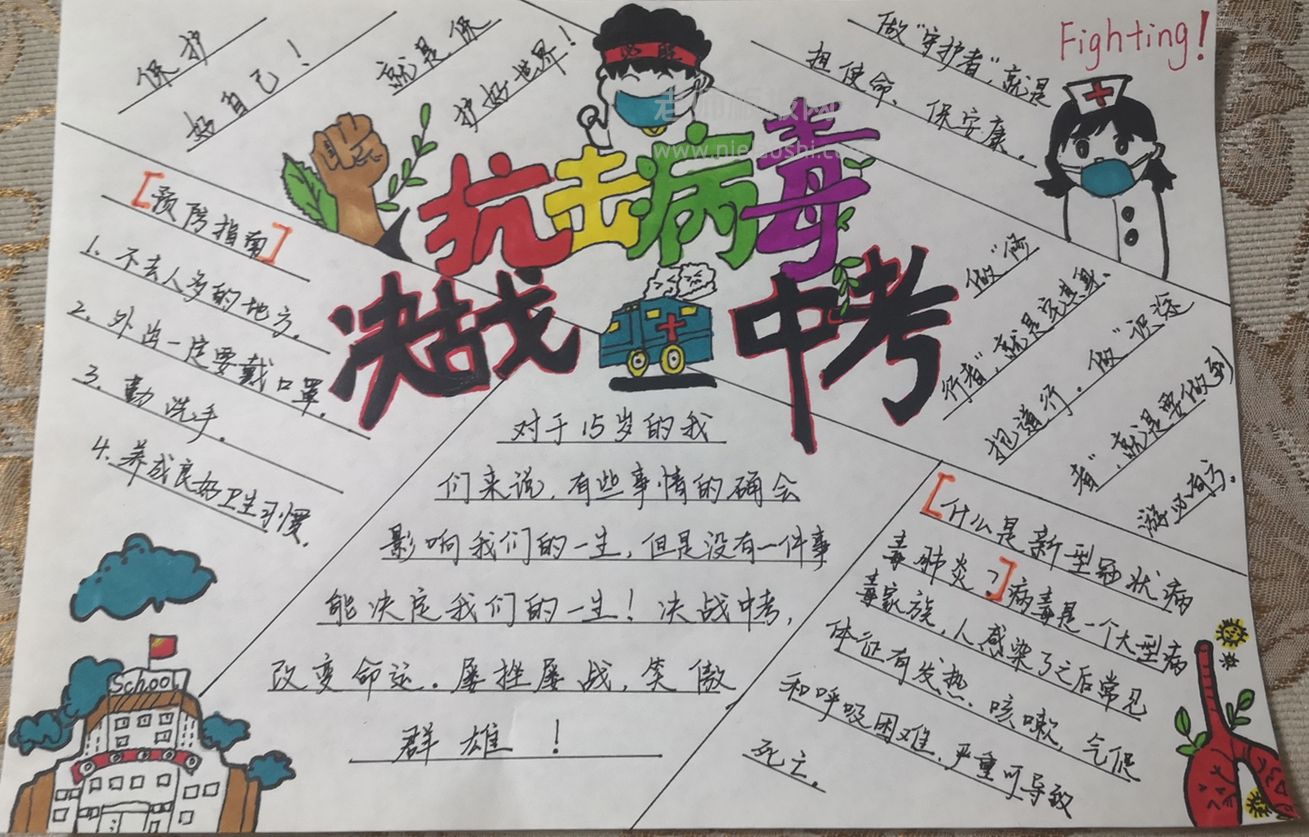 保护
好自己！
就是保
护好世界！
必胜
做“守护者”，就是
担使命、保安康。
Fighting!
抗击病毒
决战中考
【预防指南】
1. 不去人多的地方。
2. 外出一定要戴口罩。
3. 勤洗手。
4. 养成良好卫生习慣。
做“修
行者”，就是完其身、
抱道行。做“识途
者”，就是要做到
游必有方。
对于15岁的我
们来说，有些事情的确会
影响我们的一生，但是没有一件事
能决定我们的一生！决战中考，
改变命运。屡挫屡战，笑傲
群雄！
【什么是新型冠状病
毒肺炎？】病毒是一个大型病
毒家族，人感染了之后常见
体征有发热、咳嗽、气促
和呼吸困难，严重可导致
死亡。
School